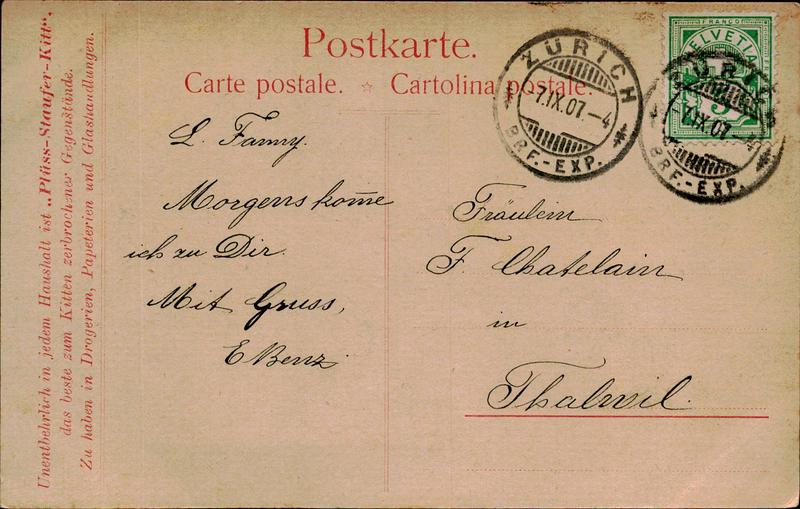 Postkarte.
Carte postale. ☆ Cartolina postale.
Unentbehrlich in jedem Haushalt ist „Plüss-Staufer-Kitt“,
das beste zum Kitten zerbrochner Gegenstände.
Zu haben in Drogerien, Papeterien und Glashandlungen.
L. Fanny.
Morgens kom̅e
ich zu Dir.
Mit Gruss,
E Benz
Fräulein
F. Chatelain
in
Thalwil.
ZÜRICH
7.IX.07.-4
BRF.-EXP.
FRANCO
HELVETIA
5
ZÜRICH
7.IX.07.-4
BRF.-EXP.